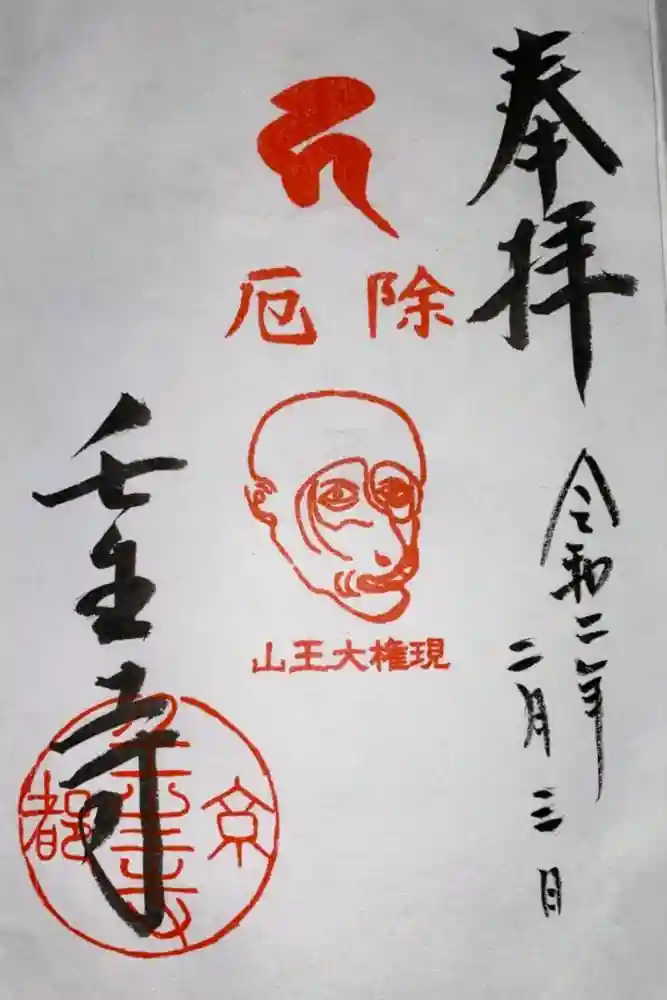 奉拝
令和二年
二月三日
厄除
山王大権現
壬生寺
京都
壬生寺